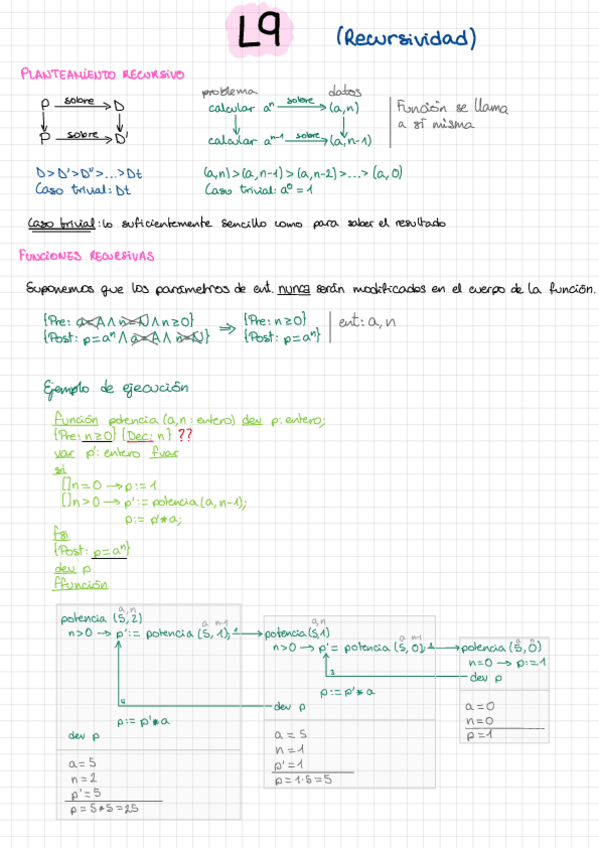 L9
(Recursividad)
PLANTEAMIENTO RECURSIVO
P sobre D
P sobre D'
problema datos
calcular aⁿ sobre (a,n)
calcular aⁿ⁻¹ sobre (a,n-1)
Función se llama
a sí misma
D>D'>D''>...>Dt
Caso trivial: Dt
(a,n)>(a,n-1)>(a,n-2)>...>(a,0)
Caso trivial: a⁰=1
Caso trivial: lo suficientemente sencillo como para saber el resultado
FUNCIONES RECURSIVAS
Suponemos que los parámetros de ent. nunca serán modificados en el cuerpo de la función.
{Pre: a=A ∧ n=N ∧ n≥0} ⇒ {Pre: n≥0}
{Post: p=aⁿ ∧ a=A ∧ n=N} {Post: p=aⁿ}
ent: a,n
Ejemplo de ejecución
función potencia (a,n: entero) dev p: entero;
{Pre: n≥0} {Dec: n} ??
var p': entero fvar
si
[]n=0 → p:=1
[]n>0 → p':= potencia(a,n-1);
p:= p'*a;
fsi
{Post: p=aⁿ}
dev p
ffunción
a, n
potencia (5,2)
a n-1
n>0 → p':= potencia (5,1); 1
p:= p'*a
dev p
4
a=5
n=2
p'=5
p=5*5=25
a,n
potencia(5,1)
a n-1
n>0 → p'= potencia (5,0)
p:= p'*a
dev p
3
a=5
n=1
p'=1
p=1·5=5
potencia (5,0)
n=0 → p:=1
dev p
a=0
n=0
p=1